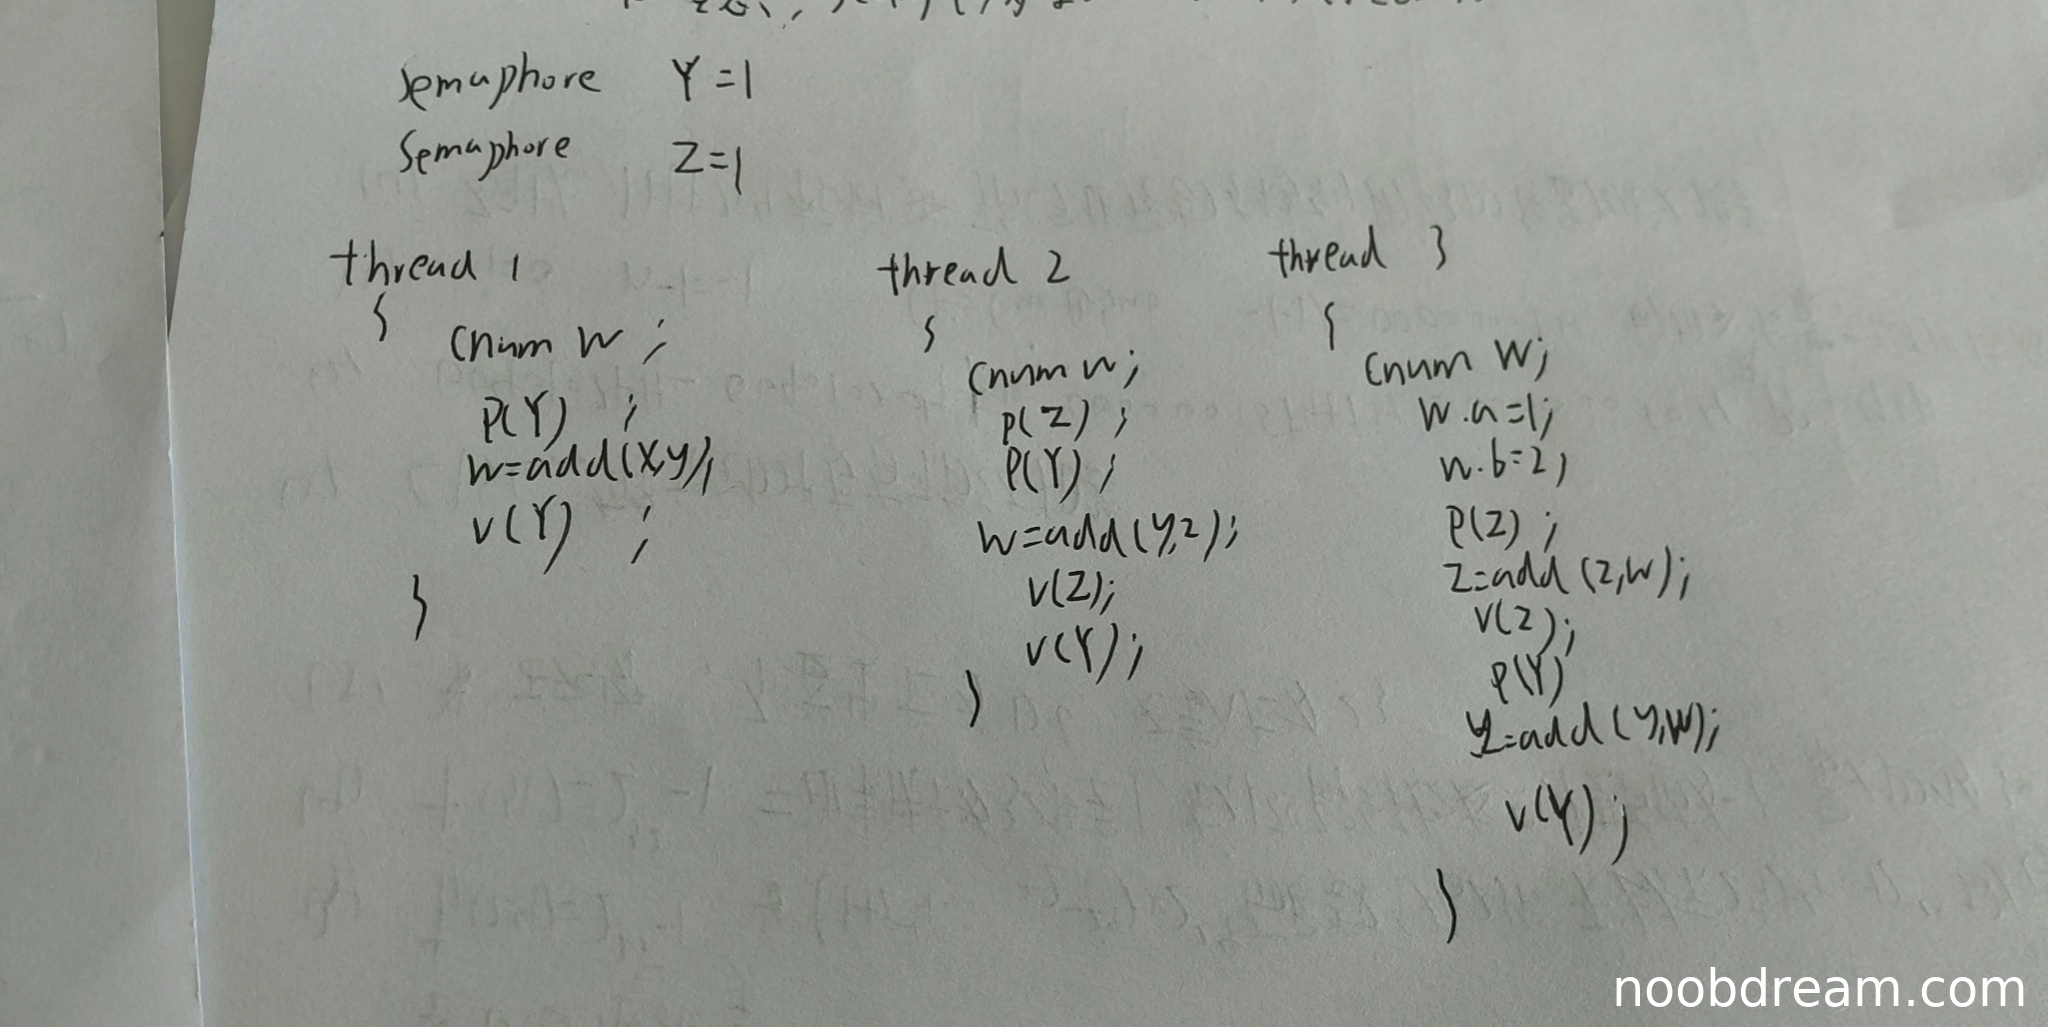 Semaphore Y=1
Semaphore Z=1
thread 1
{
Cnum w ;
P(Y) ;
w=add(x,y);
v(Y) ;
}
thread 2
{
Cnum w;
P(Z) ;
P(Y) ;
w=add(y,z);
v(Z);
v(Y);
}
thread 3
{
Cnum w;
w.a=1;
w.b=2;
P(Z) ;
z=add(z,w);
v(Z);
P(Y)
y=add(y,w);
v(Y);
}
noobdream.com